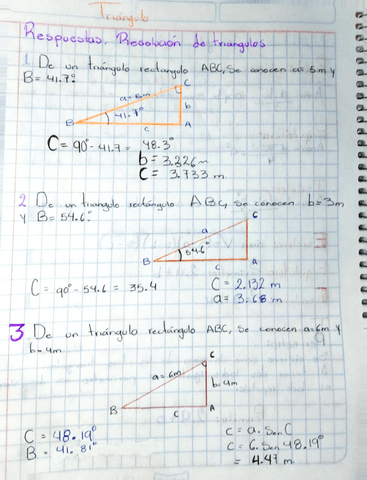 Triángulo
Respuestas. Resolución de triangulos
1. De un triángulo rectangulo ABC, se conocen a= 5m y
B= 41.7º
C
a=5m
b
41.7º
B
c
A
C= 90º- 41.7= 48.3º
b= 3.326m
c= 3.733 m
2. De un triangulo rectángulo ABC, se conocen b=3m
y B= 54.6º
C
a
54.6º
B
c
A
C= 90º - 54.6 = 35.4
C= 2.132 m
a= 3.68 m
3 De un triángulo rectángulo ABC, se conocen a=6m y
b=4m
C
a=6m
b=4m
B
c
A
C= 48.19º
B= 41.81º
c= a. Sen C
c= 6. Sen 48.19º
= 4.47 m